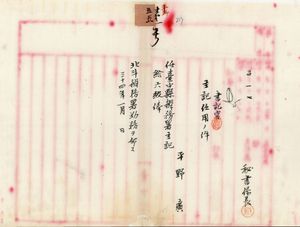 秘書係長
書記官
主記任用ノ件
平野廣
任臺中縣辨務署主記
給六級俸
北斗辨務署勤務ヲ命ス
三十四年一月　日